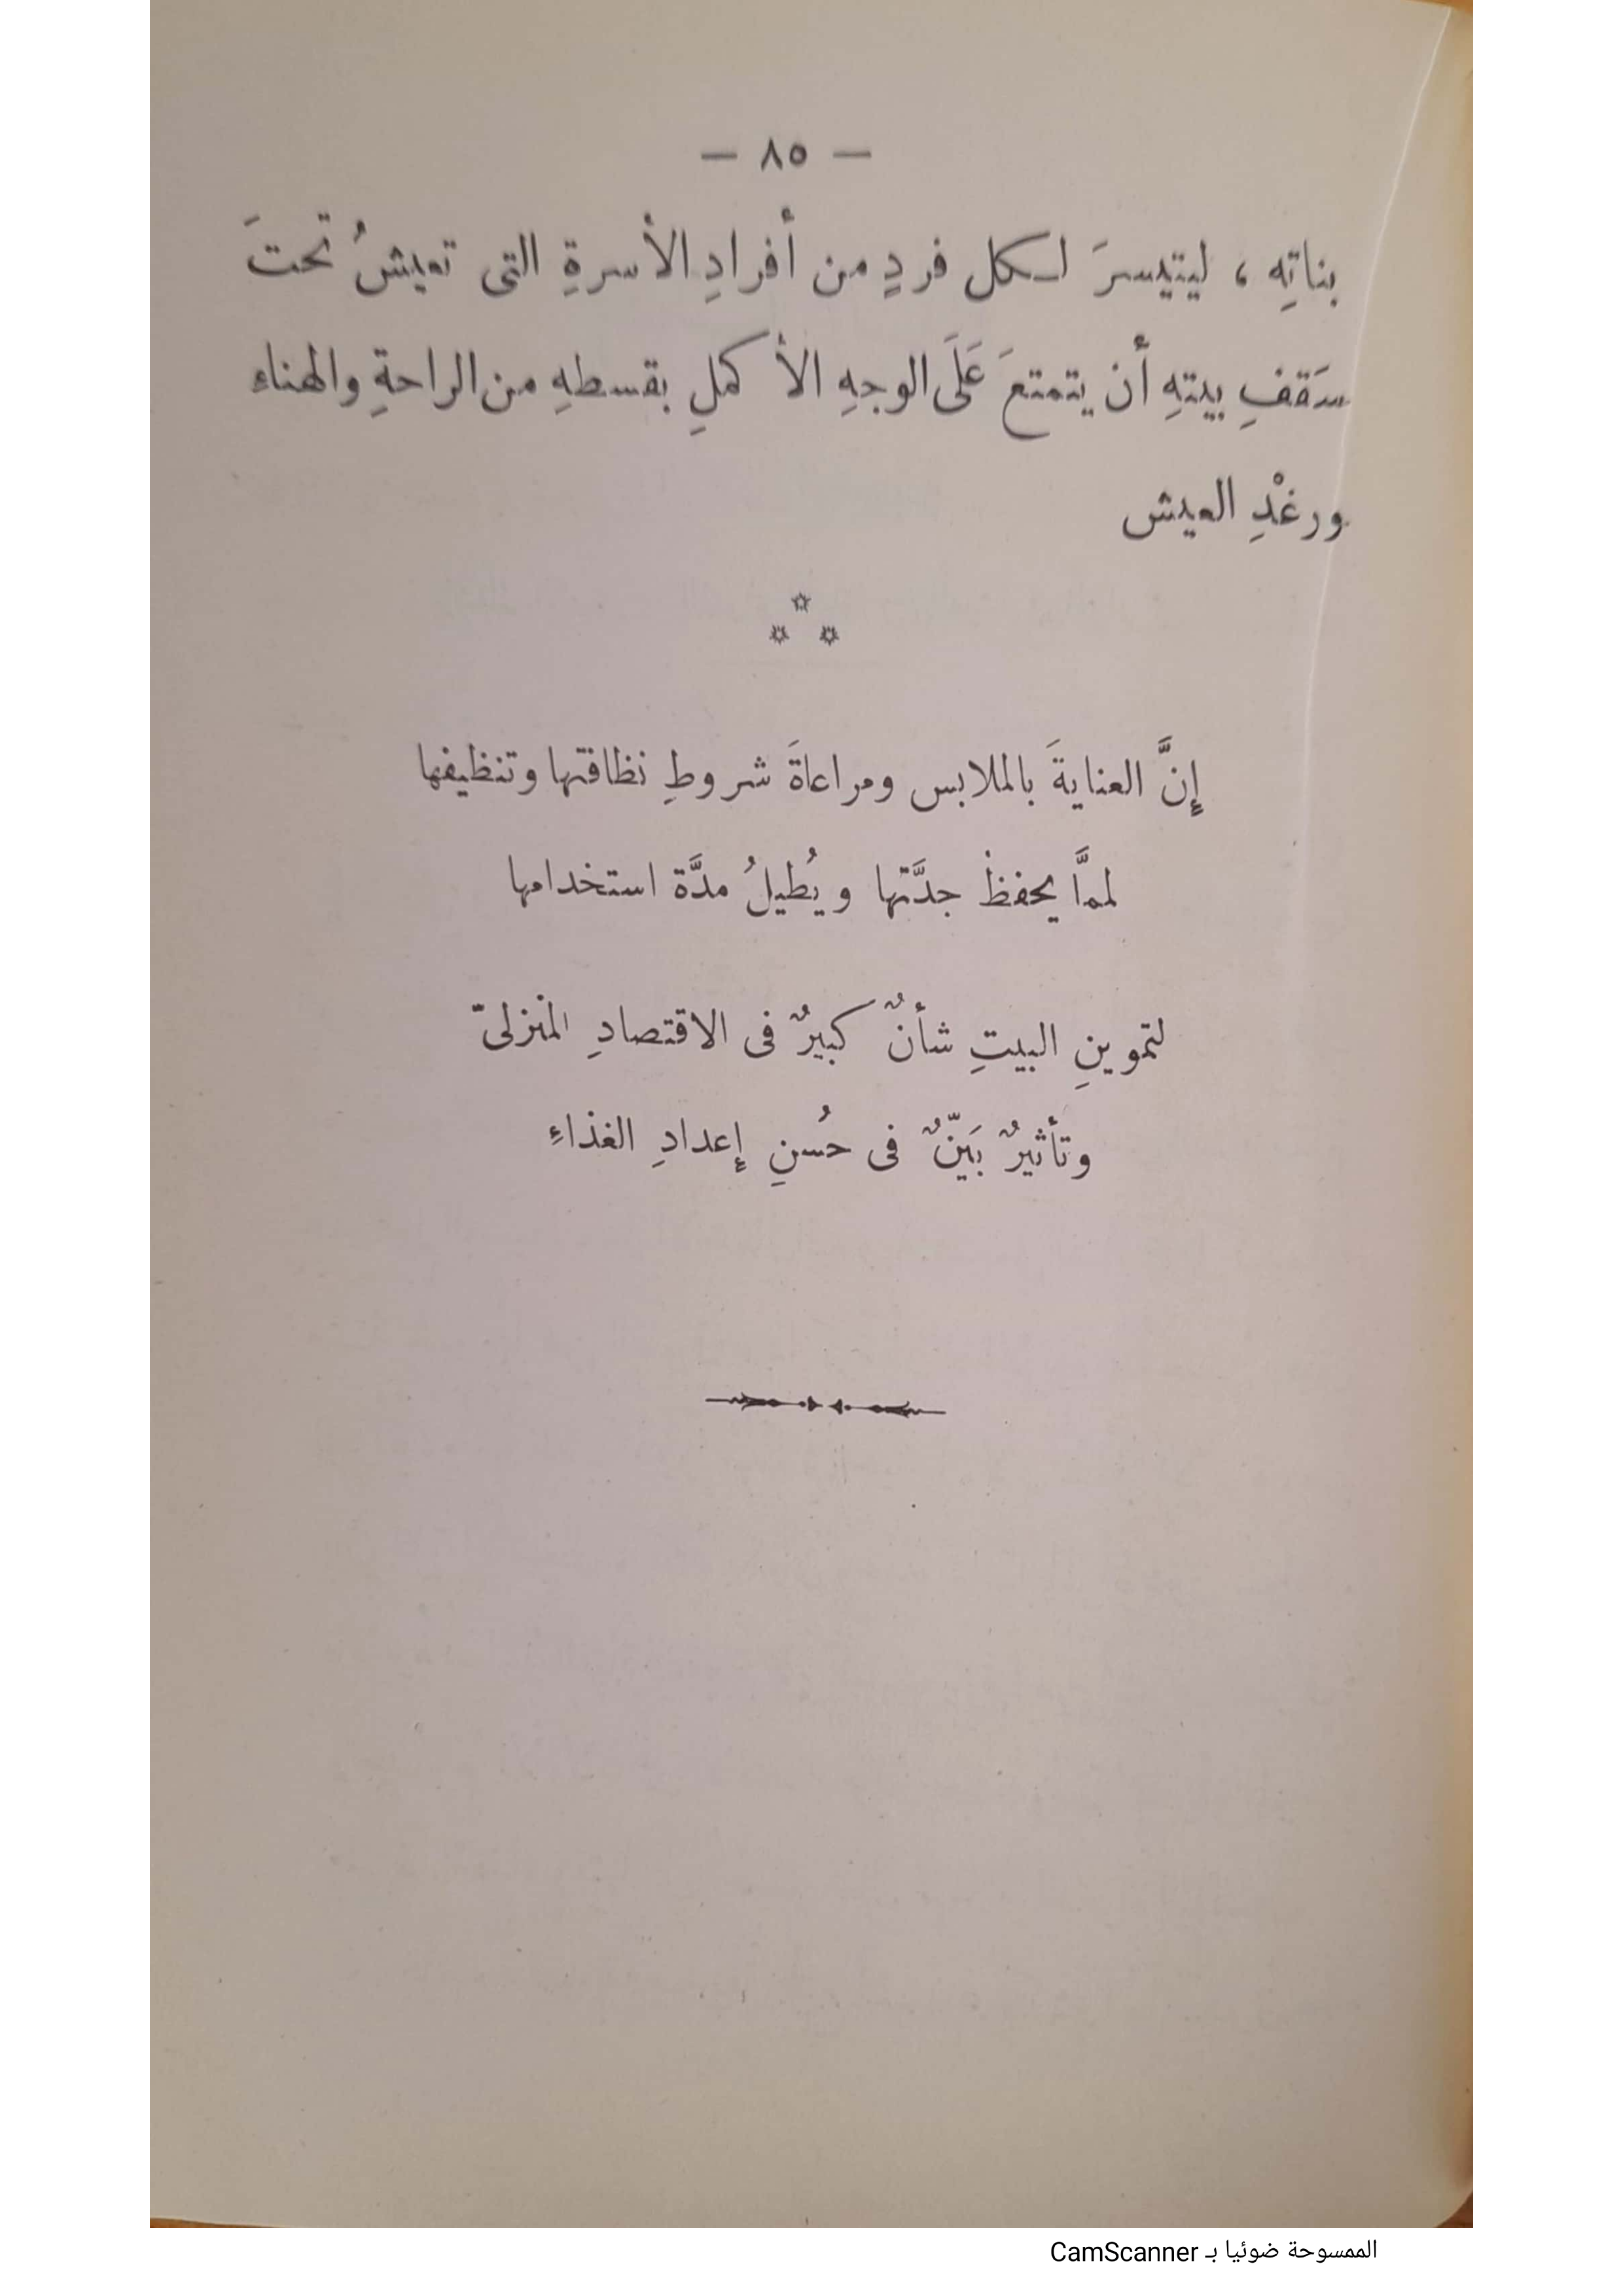 — ٨٥ —
بناتِه ، ليتيسرَ لكل فردٍ من أفرادِ الأسرةِ التى تعيشُ تحتَ
سَقفِ بيتهِ أن يتمتعَ عَلَى الوجهِ الأكملِ بقسطهِ من الراحةِ والهناء
ورغْدِ العيش
إنَّ العنايةَ بالملابس ومراعاةَ شروطِ نظافتها وتنظيفها
لممَّا يحفظُ جدَّتها ويُطيلُ مدَّة استخدامها
لتموينِ البيتِ شأنٌ كبيرٌ فى الاقتصادِ المنزلىّ
وتأثيرٌ بَيّنٌ فى حُسنِ إعدادِ الغذاءِ
الممسوحة ضوئيا بـ CamScanner